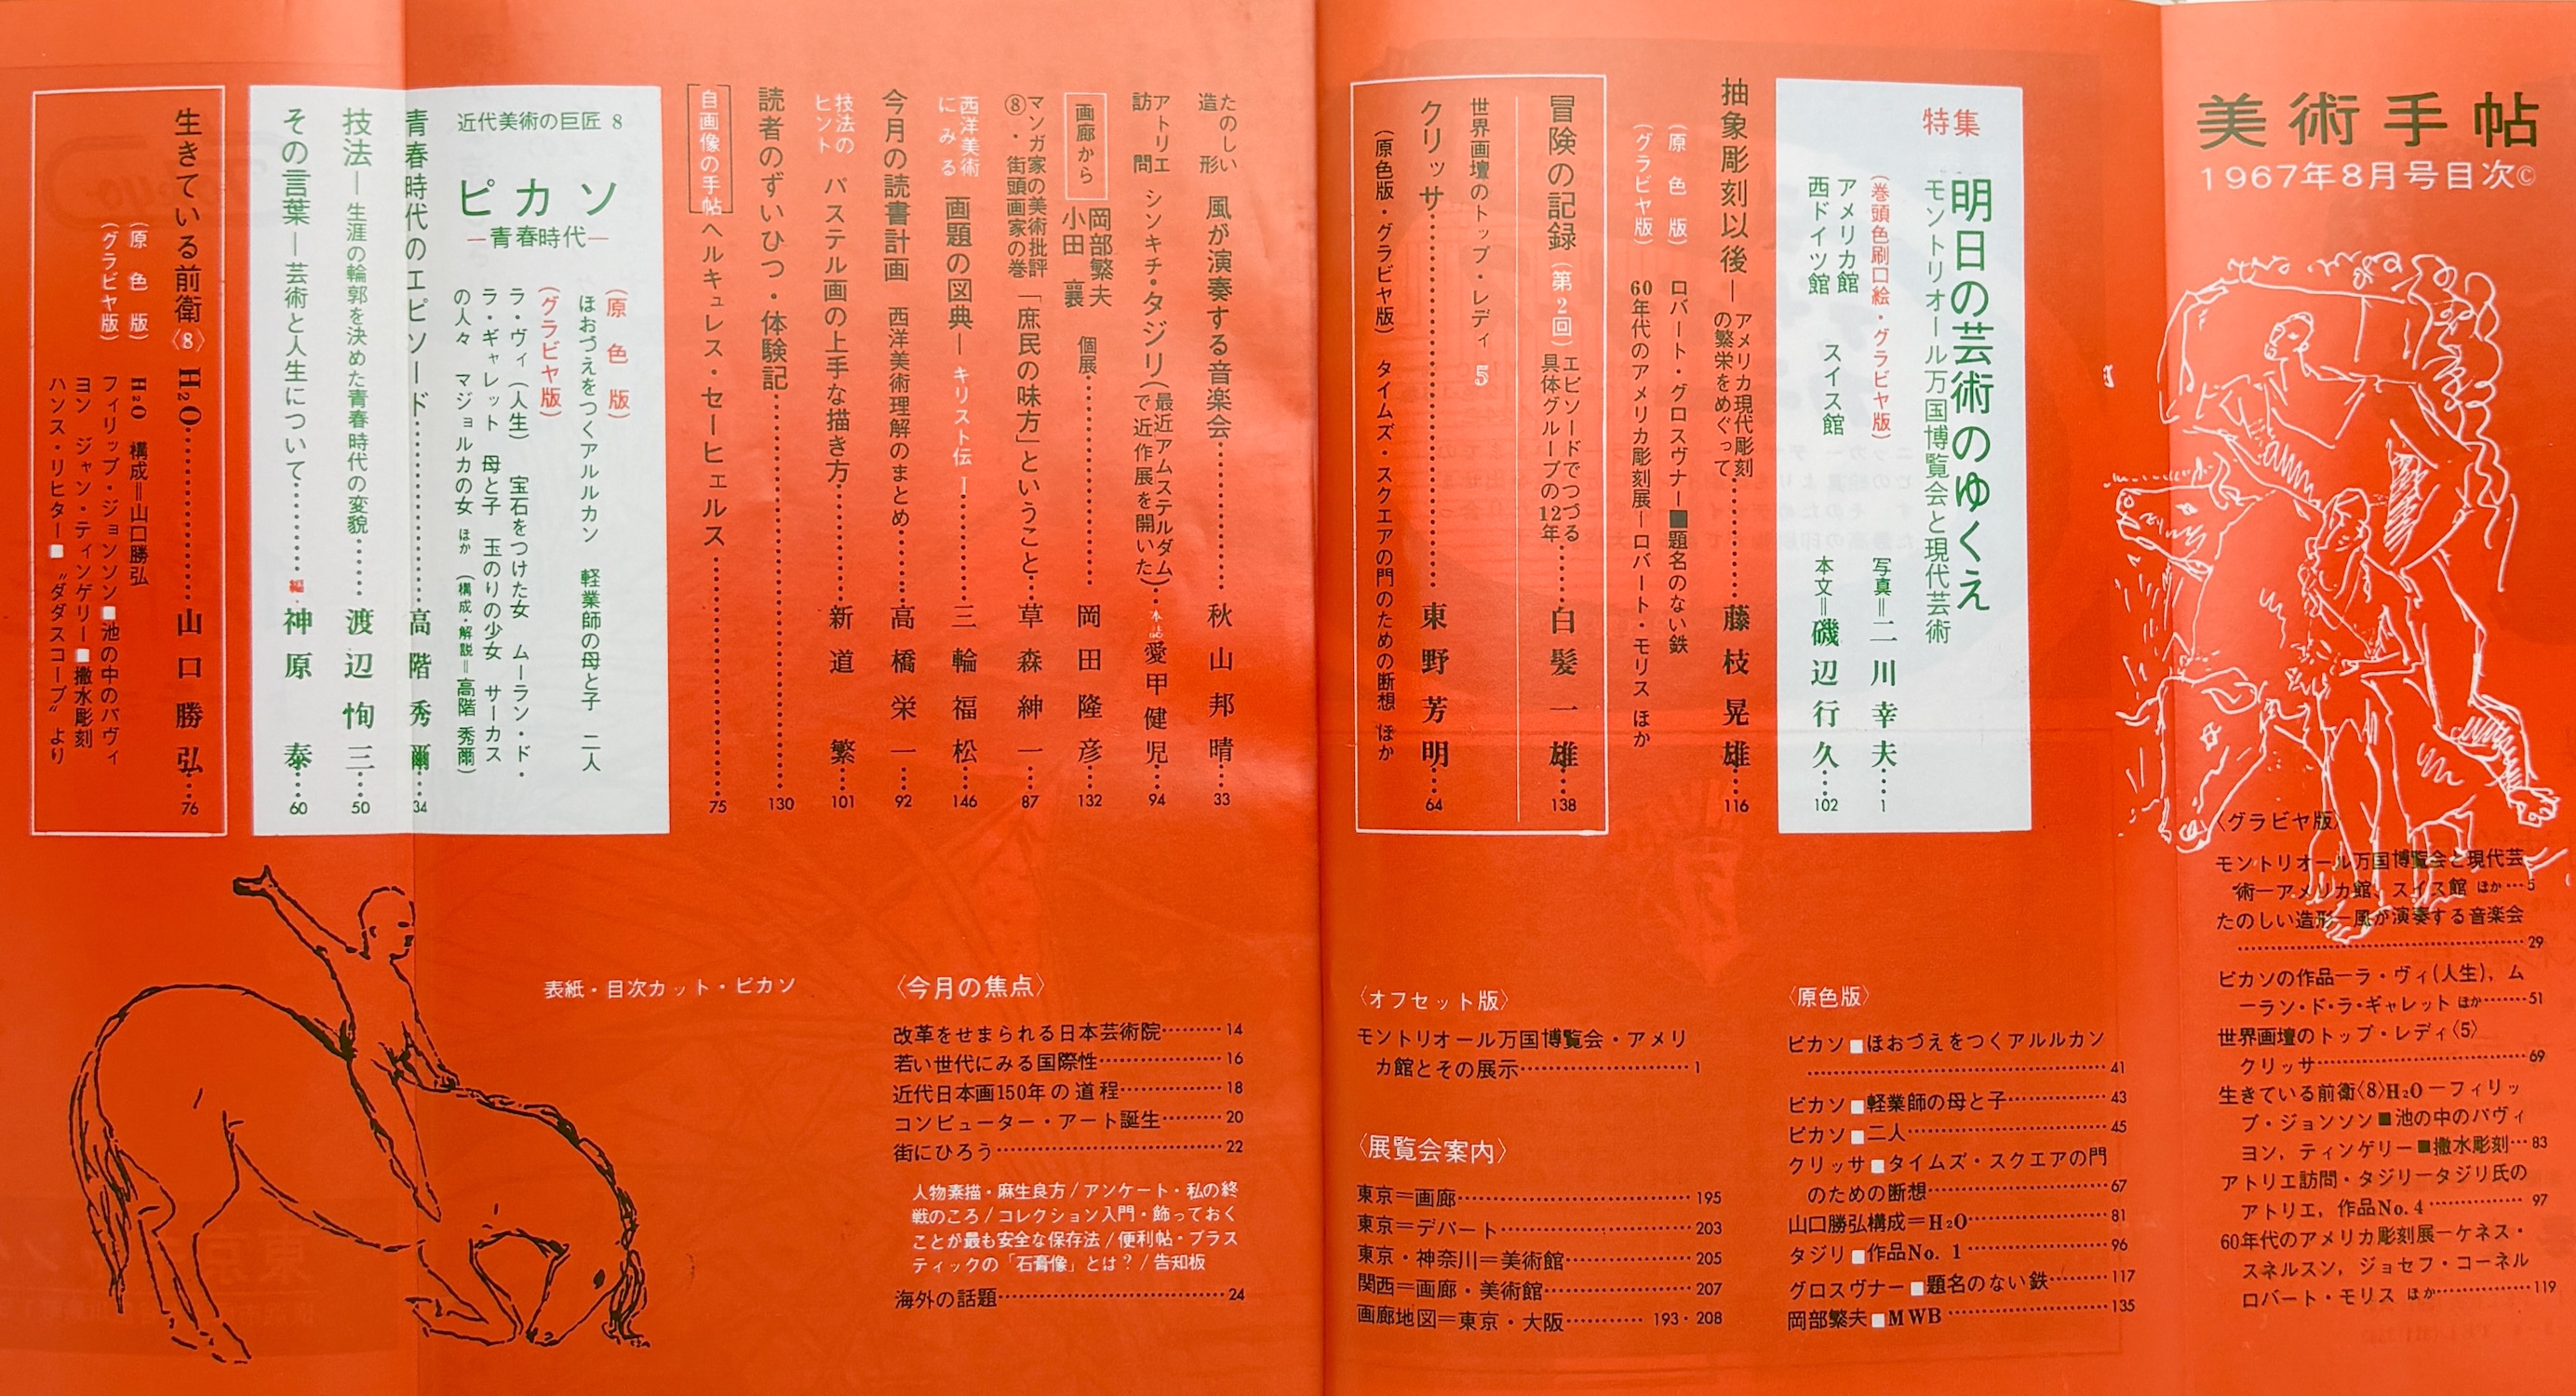 美術手帖
1967年8月号目次©
特集
明日の芸術のゆくえ
モントリオール万国博覧会と現代芸術
(巻頭色刷口絵・グラビヤ版)
アメリカ館 スイス館
西ドイツ館
写真=二川幸夫……1
本文=磯辺行久……102
抽象彫刻以後—アメリカ現代彫刻
の繁栄をめぐって……藤枝晃雄……116
(原色版) ロバート・グロスヴナー■題名のない鉄
(グラビヤ版) 60年代のアメリカ彫刻展—ロバート・モリス ほか
冒険の記録(第2回)エピソードでつづる
具体グループの12年……白髪一雄……138
世界画壇のトップ・レディ 5
クリッサ……東野芳明……64
(原色版・グラビヤ版) タイムズ・スクエアの門のための断想 ほか
たのしい
造形 風が演奏する音楽会……秋山邦晴……33
アトリエ
訪問 シンキチ・タジリ(最近アムステルダム
で近作展を開いた)……本誌 愛甲健児……94
画廊から 岡部繁夫
小田襄 個展……岡田隆彦……132
マンガ家の美術批評
⑧・街頭画家の巻 「庶民の味方」ということ……草森紳一……87
西洋美術
にみる 画題の図典—キリスト伝Ⅰ……三輪福松……146
今月の読書計画 西洋美術理解のまとめ……高橋栄一……92
技法の
ヒント パステル画の上手な描き方……新道繁……101
読者のずいひつ・体験記……130
自画像の手帖 ヘルキュレス・セーヒェルス……75
近代美術の巨匠 8
ピカソ
—青春時代—
(原色版)
ほおづえをつくアルルカン 軽業師の母と子 二人
(グラビヤ版)
ラ・ヴィ(人生) 宝石をつけた女 ムーラン・ド・
ラ・ギャレット 母と子 玉のりの少女 サーカス
の人々 マジョルカの女 ほか (構成・解説=高階秀爾)
青春時代のエピソード……高階秀爾……34
技法—生涯の輪郭を決めた青春時代の変貌……渡辺恂三……50
その言葉—芸術と人生について……編・神原泰……60
生きている前衛〈8〉H₂O……山口勝弘……76
(原色版) H₂O 構成=山口勝弘
(グラビヤ版) フィリップ・ジョンソン■池の中のパヴィ
ヨン ジャン・ティンゲリー■撒水彫刻
ハンス・リヒター■“ダダスコープ”より
〈グラビヤ版〉
モントリオール万国博覧会と現代芸
術—アメリカ館、スイス館 ほか…5
たのしい造形—風が演奏する音楽会
……29
ピカソの作品—ラ・ヴィ(人生), ム
ーラン・ド・ラ・ギャレット ほか……51
世界画壇のトップ・レディ〈5〉
クリッサ……69
生きている前衛〈8〉H₂O—フィリッ
プ・ジョンソン■池の中のパヴィ
ヨン, ティンゲリー■撒水彫刻…83
アトリエ訪問・タジリ—タジリ氏の
アトリエ, 作品No.4……97
60年代のアメリカ彫刻展—ケネス・
スネルスン, ジョセフ・コーネル
ロバート・モリス ほか……119
〈原色版〉
ピカソ■ほおづえをつくアルルカン
……41
ピカソ■軽業師の母と子……43
ピカソ■二人……45
クリッサ■タイムズ・スクエアの門
のための断想……67
山口勝弘構成=H₂O……81
タジリ■作品No. 1……96
グロスヴナー■題名のない鉄……117
岡部繁夫■MWB……135
〈オフセット版〉
モントリオール万国博覧会・アメリ
カ館とその展示……1
〈展覧会案内〉
東京=画廊……195
東京=デパート……203
東京・神奈川=美術館……205
関西=画廊・美術館……207
画廊地図=東京・大阪……193・208
〈今月の焦点〉
改革をせまられる日本芸術院……14
若い世代にみる国際性……16
近代日本画150年の道程……18
コンピューター・アート誕生……20
街にひろう……22
人物素描・麻生良方/アンケート・私の終
戦のころ/コレクション入門・飾っておく
ことが最も安全な保存法/便利帖・プラス
ティックの「石膏像」とは?/告知板
海外の話題……24
表紙・目次カット・ピカソ